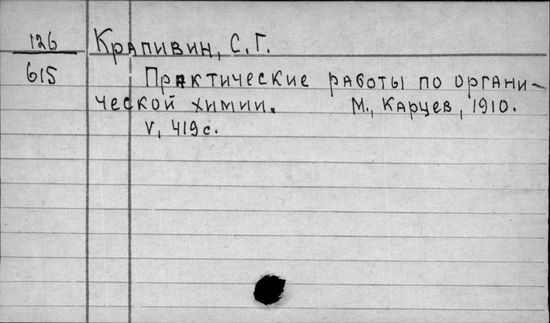 126 Крапивин, С. Г.
615 Практические работы по органи-
ческой химии. М., Карцев, 1910.
V, 419 с.